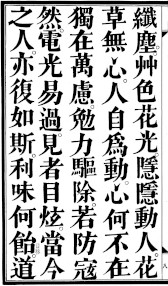 纖塵。艸色花光。隱隱動人。花
草無心。人自爲動。心何不在。
獨在萬慮。勉力驅除。若防寇
然。電光易過。見者目炫。當今
之人。亦復如斯。利味何飴。道